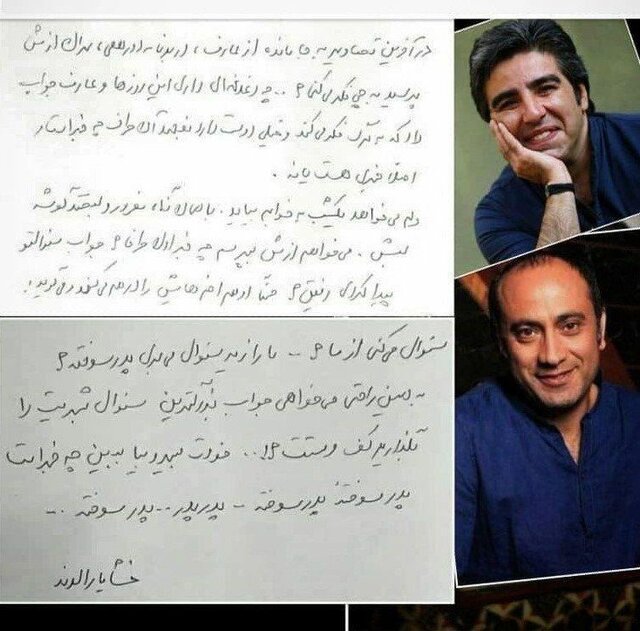 در آخرین تصاویر به جا مانده از عارف، در برنامه دورهمی، مهران ازش
پرسید به چی فکر می کنی؟ .. چه دغدغه ای داری این روزها و عارف جواب
داد که به مرگ فکر می کند و خیلی دوست دارد بفهمد آن طرف چه خبر است
اصلا خبری هست یا نه .
دلم می خواهد یکشب به خوابم بیاید. با همان نگاه مغرور و لبخند گوشه
لبش . می خواهم ازش بپرسم چه خبر اون طرفا؟ جواب سئوالتو
پیدا کردی رفیق؟ حتماً او هم اخم هایش را در هم می کند و می گوید:
سئوال می کنی از ما؟ - ما را زیر سئوال می بری پدر سوخته؟
به همین راحتی می خواهی جواب بزرگترین سئوال بشریت را
بگذاریم کف دستت؟!.. خودت بمیر و بیا ببین چه خبر است
پدر سوختهٔ پدر سوخته - پدر پدر .. پدر سوخته ..
خشایار الوند